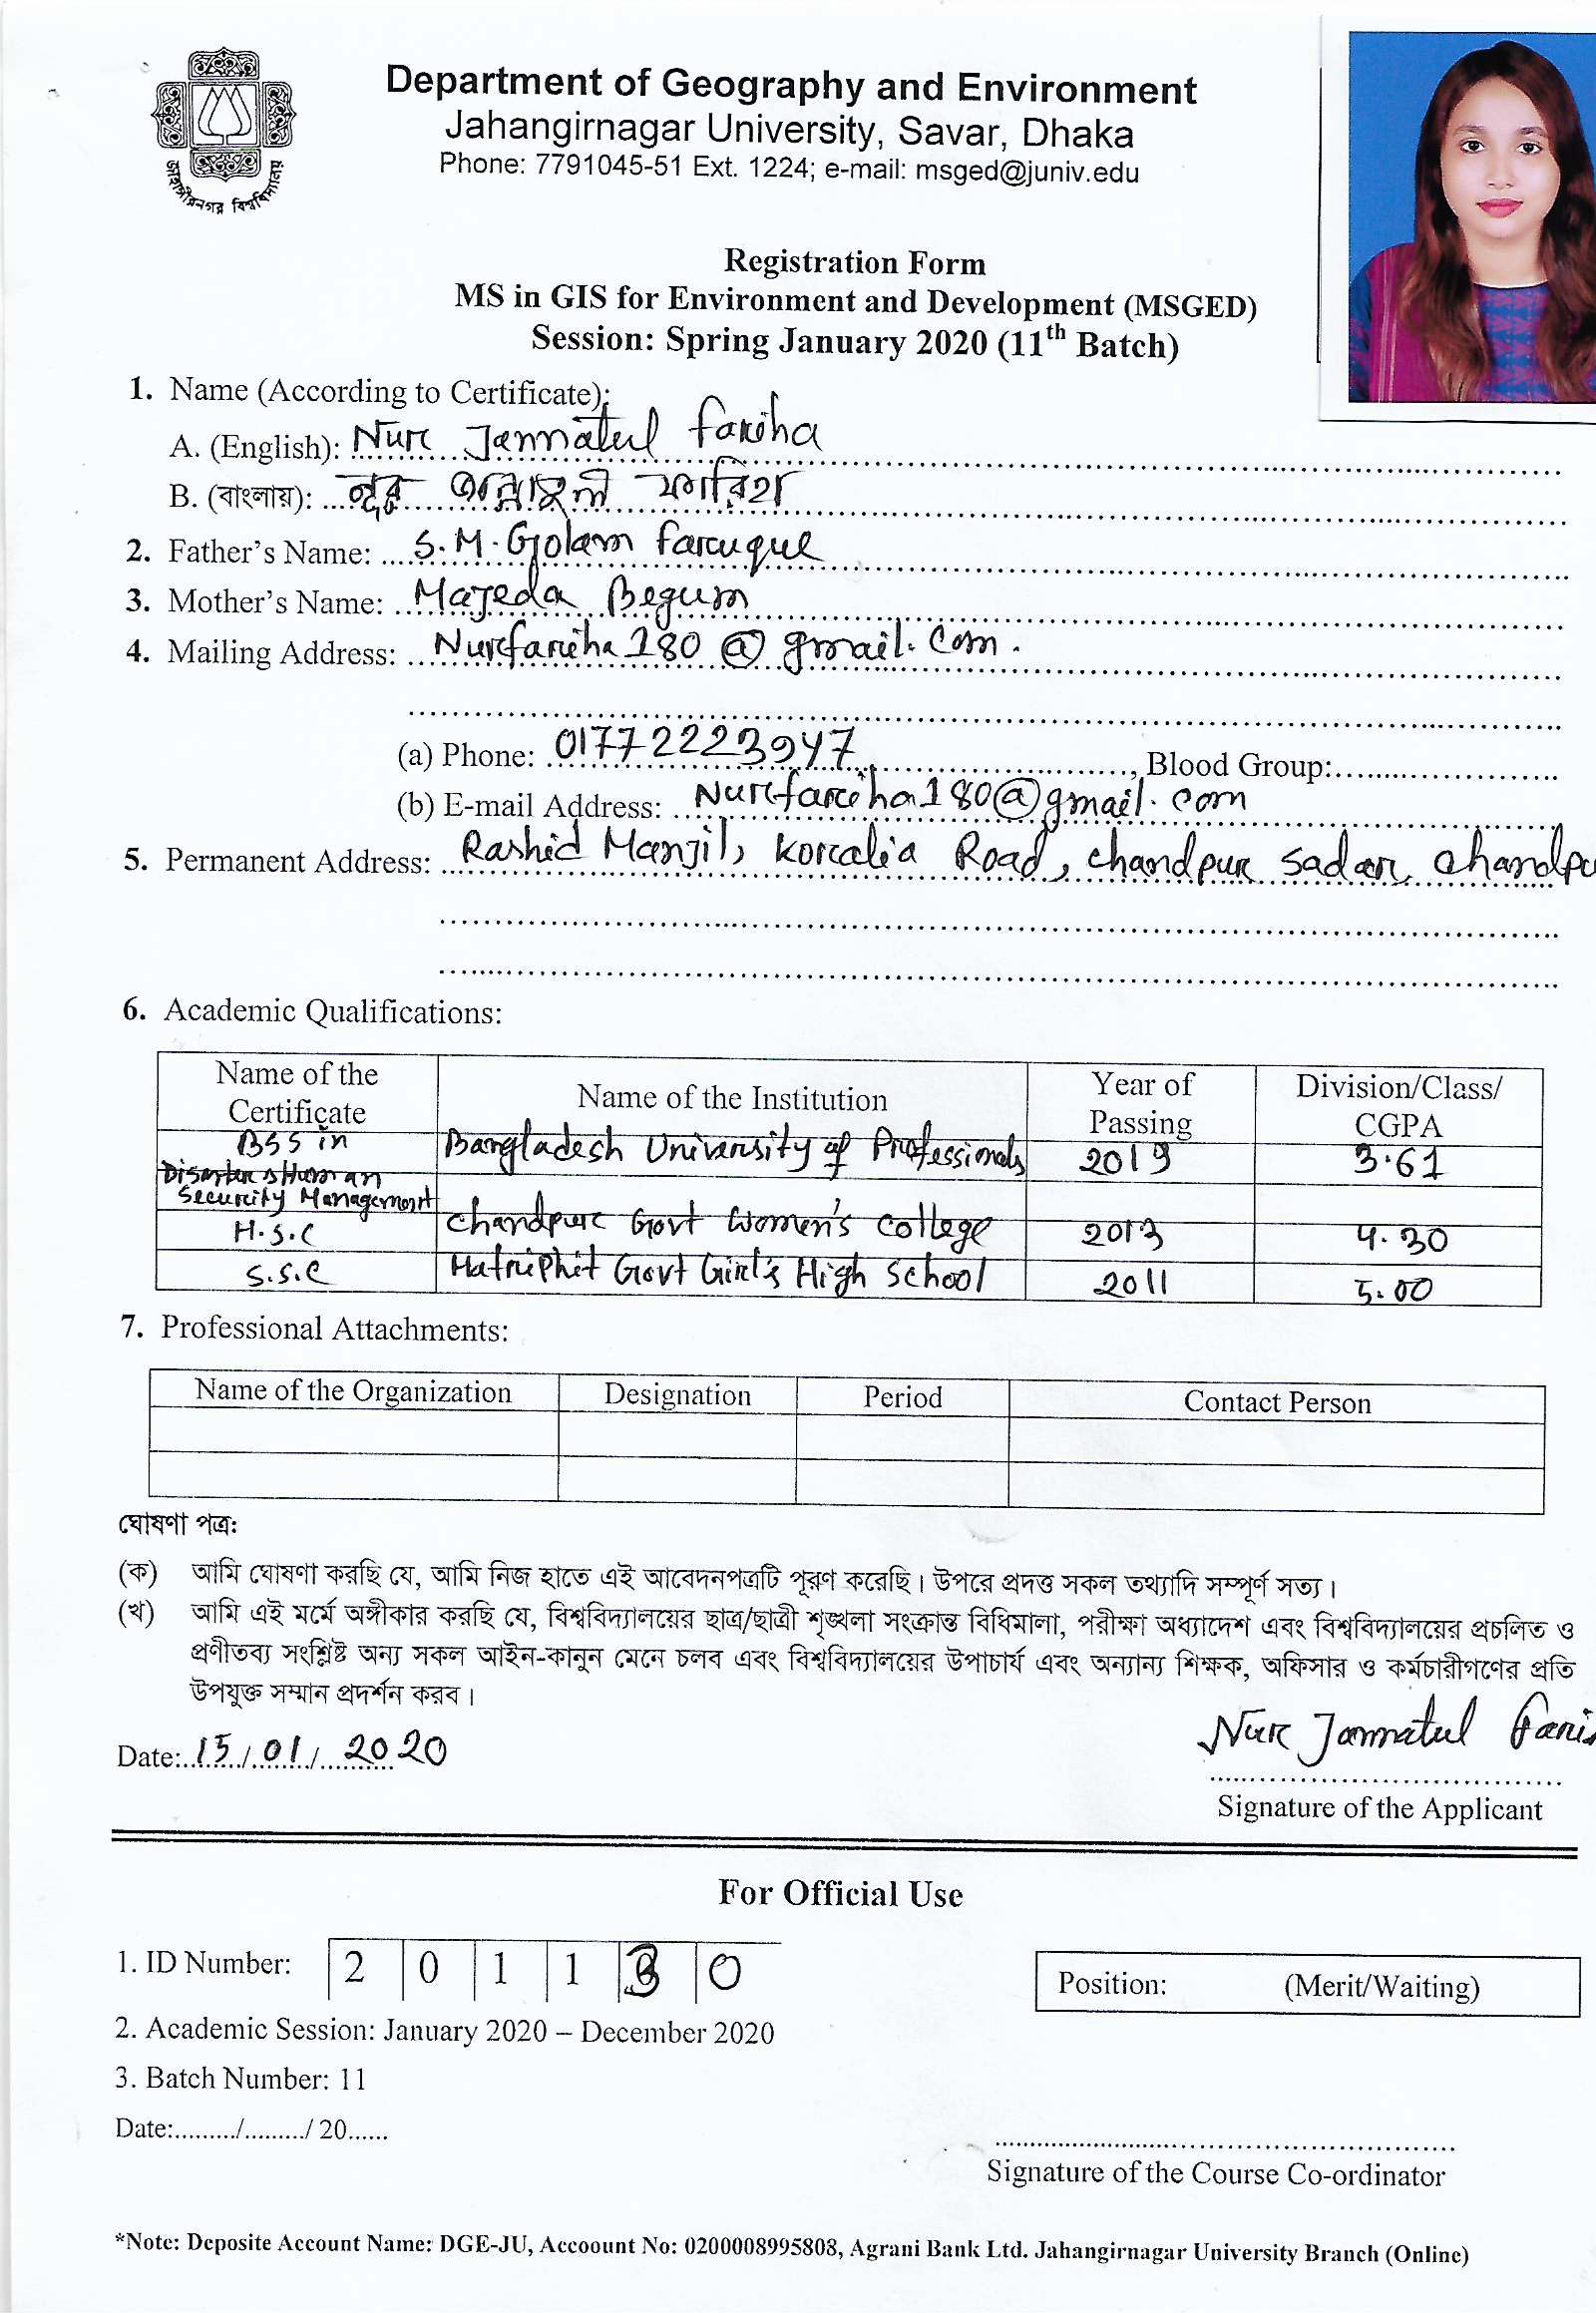 জাহাঙ্গীরনগর বিশ্ববিদ্যালয়
Department of Geography and Environment
Jahangirnagar University, Savar, Dhaka
Phone: 7791045-51 Ext. 1224; e-mail: msged@juniv.edu
Registration Form
MS in GIS for Environment and Development (MSGED)
Session: Spring January 2020 (11th Batch)
1. Name (According to Certificate):
A. (English): Nur Jannatul Fariha
B. (বাংলায়): নূর জান্নাতুল ফারিহা
2. Father's Name: S.M. Golam Faruque
3. Mother's Name: Majeda Begum
4. Mailing Address: Nurfariha180@gmail.com.
(a) Phone: 01772223947, Blood Group:
(b) E-mail Address: Nurfariha180@gmail.com
5. Permanent Address: Rashid Manjil, Koralia Road, Chandpur Sadar, Chandpu
6. Academic Qualifications:
Name of the Certificate Name of the Institution Year of Passing Division/Class/ CGPA
BSS in Disaster & Human Security Management Bangladesh University of Professionals 2019 3.61
H.S.C Chandpur Govt Women's College 2013 4.30
S.S.C Matriphit Govt Girl's High School 2011 5.00
7. Professional Attachments:
Name of the Organization Designation Period Contact Person
ঘোষণা পত্র:
(ক) আমি ঘোষণা করছি যে, আমি নিজ হাতে এই আবেদনপত্রটি পূরণ করেছি। উপরে প্রদত্ত সকল তথ্যাদি সম্পূর্ণ সত্য।
(খ) আমি এই মর্মে অঙ্গীকার করছি যে, বিশ্ববিদ্যালয়ের ছাত্র/ছাত্রী শৃঙ্খলা সংক্রান্ত বিধিমালা, পরীক্ষা অধ্যাদেশ এবং বিশ্ববিদ্যালয়ের প্রচলিত ও
প্রণীতব্য সংশ্লিষ্ট অন্য সকল আইন-কানুন মেনে চলব এবং বিশ্ববিদ্যালয়ের উপাচার্য এবং অন্যান্য শিক্ষক, অফিসার ও কর্মচারীগণের প্রতি
উপযুক্ত সম্মান প্রদর্শন করব।
Nur Jannatul Fari
Date: 15/01/2020
Signature of the Applicant
For Official Use
1. ID Number: 2 0 1 1 3 0
Position: (Merit/Waiting)
2. Academic Session: January 2020 – December 2020
3. Batch Number: 11
Date:........./........./ 20......
Signature of the Course Co-ordinator
*Note: Deposite Account Name: DGE-JU, Accoount No: 0200008995808, Agrani Bank Ltd. Jahangirnagar University Branch (Online)